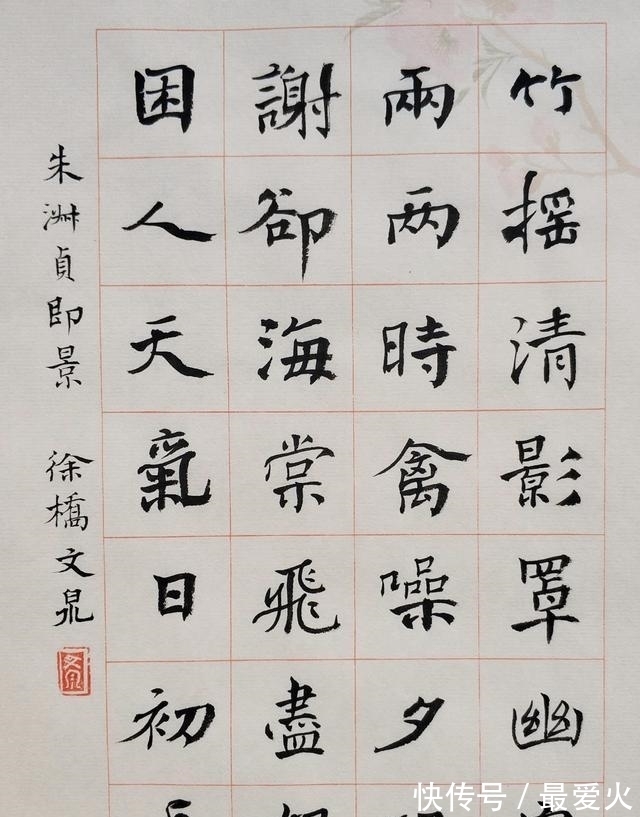 竹摇清影罩幽
兩两時禽噪夕
謝卻海棠飛盡
困人天氣日初
朱淑貞即景 徐橋文泉
快传号/最爱火